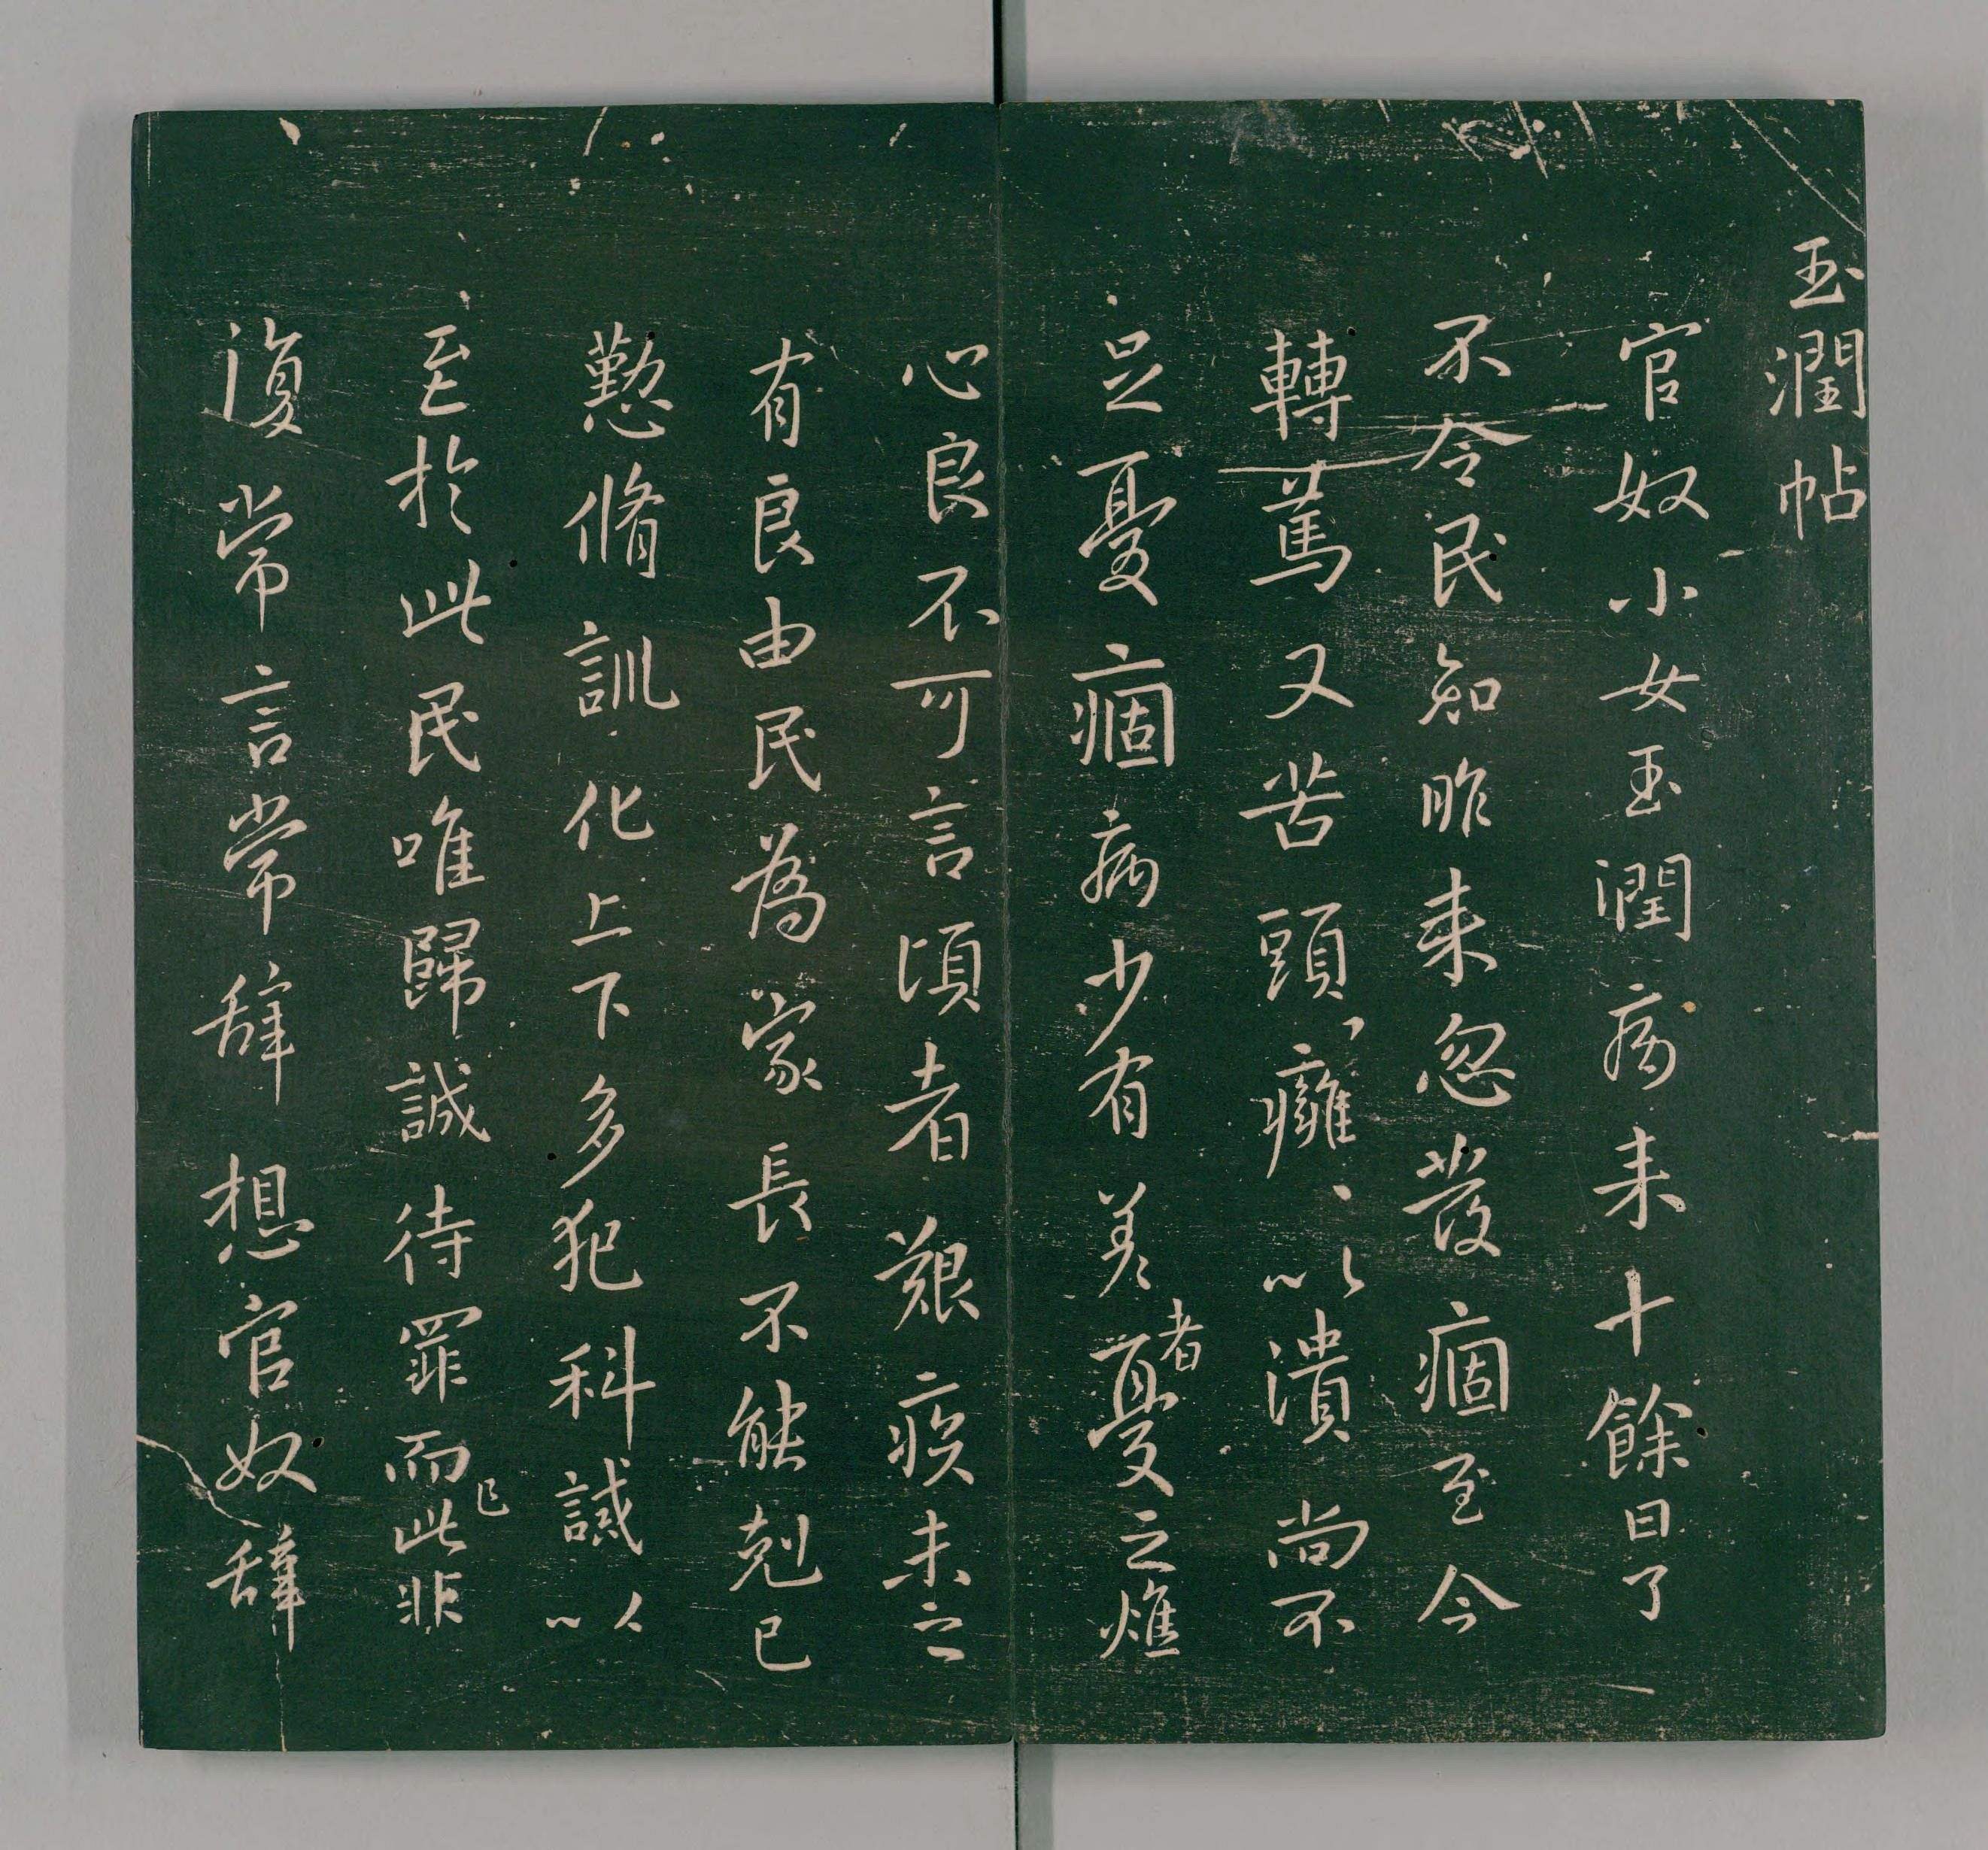 玉潤帖
官奴小女玉潤病来十餘日了
不令民知昨来忽發痼至今
轉篤又苦頭癰癰以潰尚不
足憂痼病少有差者憂之燋
心良不可言頃者艱疾未之
有良由民為家長不能剋己
懃脩訓化上下多犯科誡以
至於此民唯歸誠待罪而已此非
復常言常辭想官奴辭